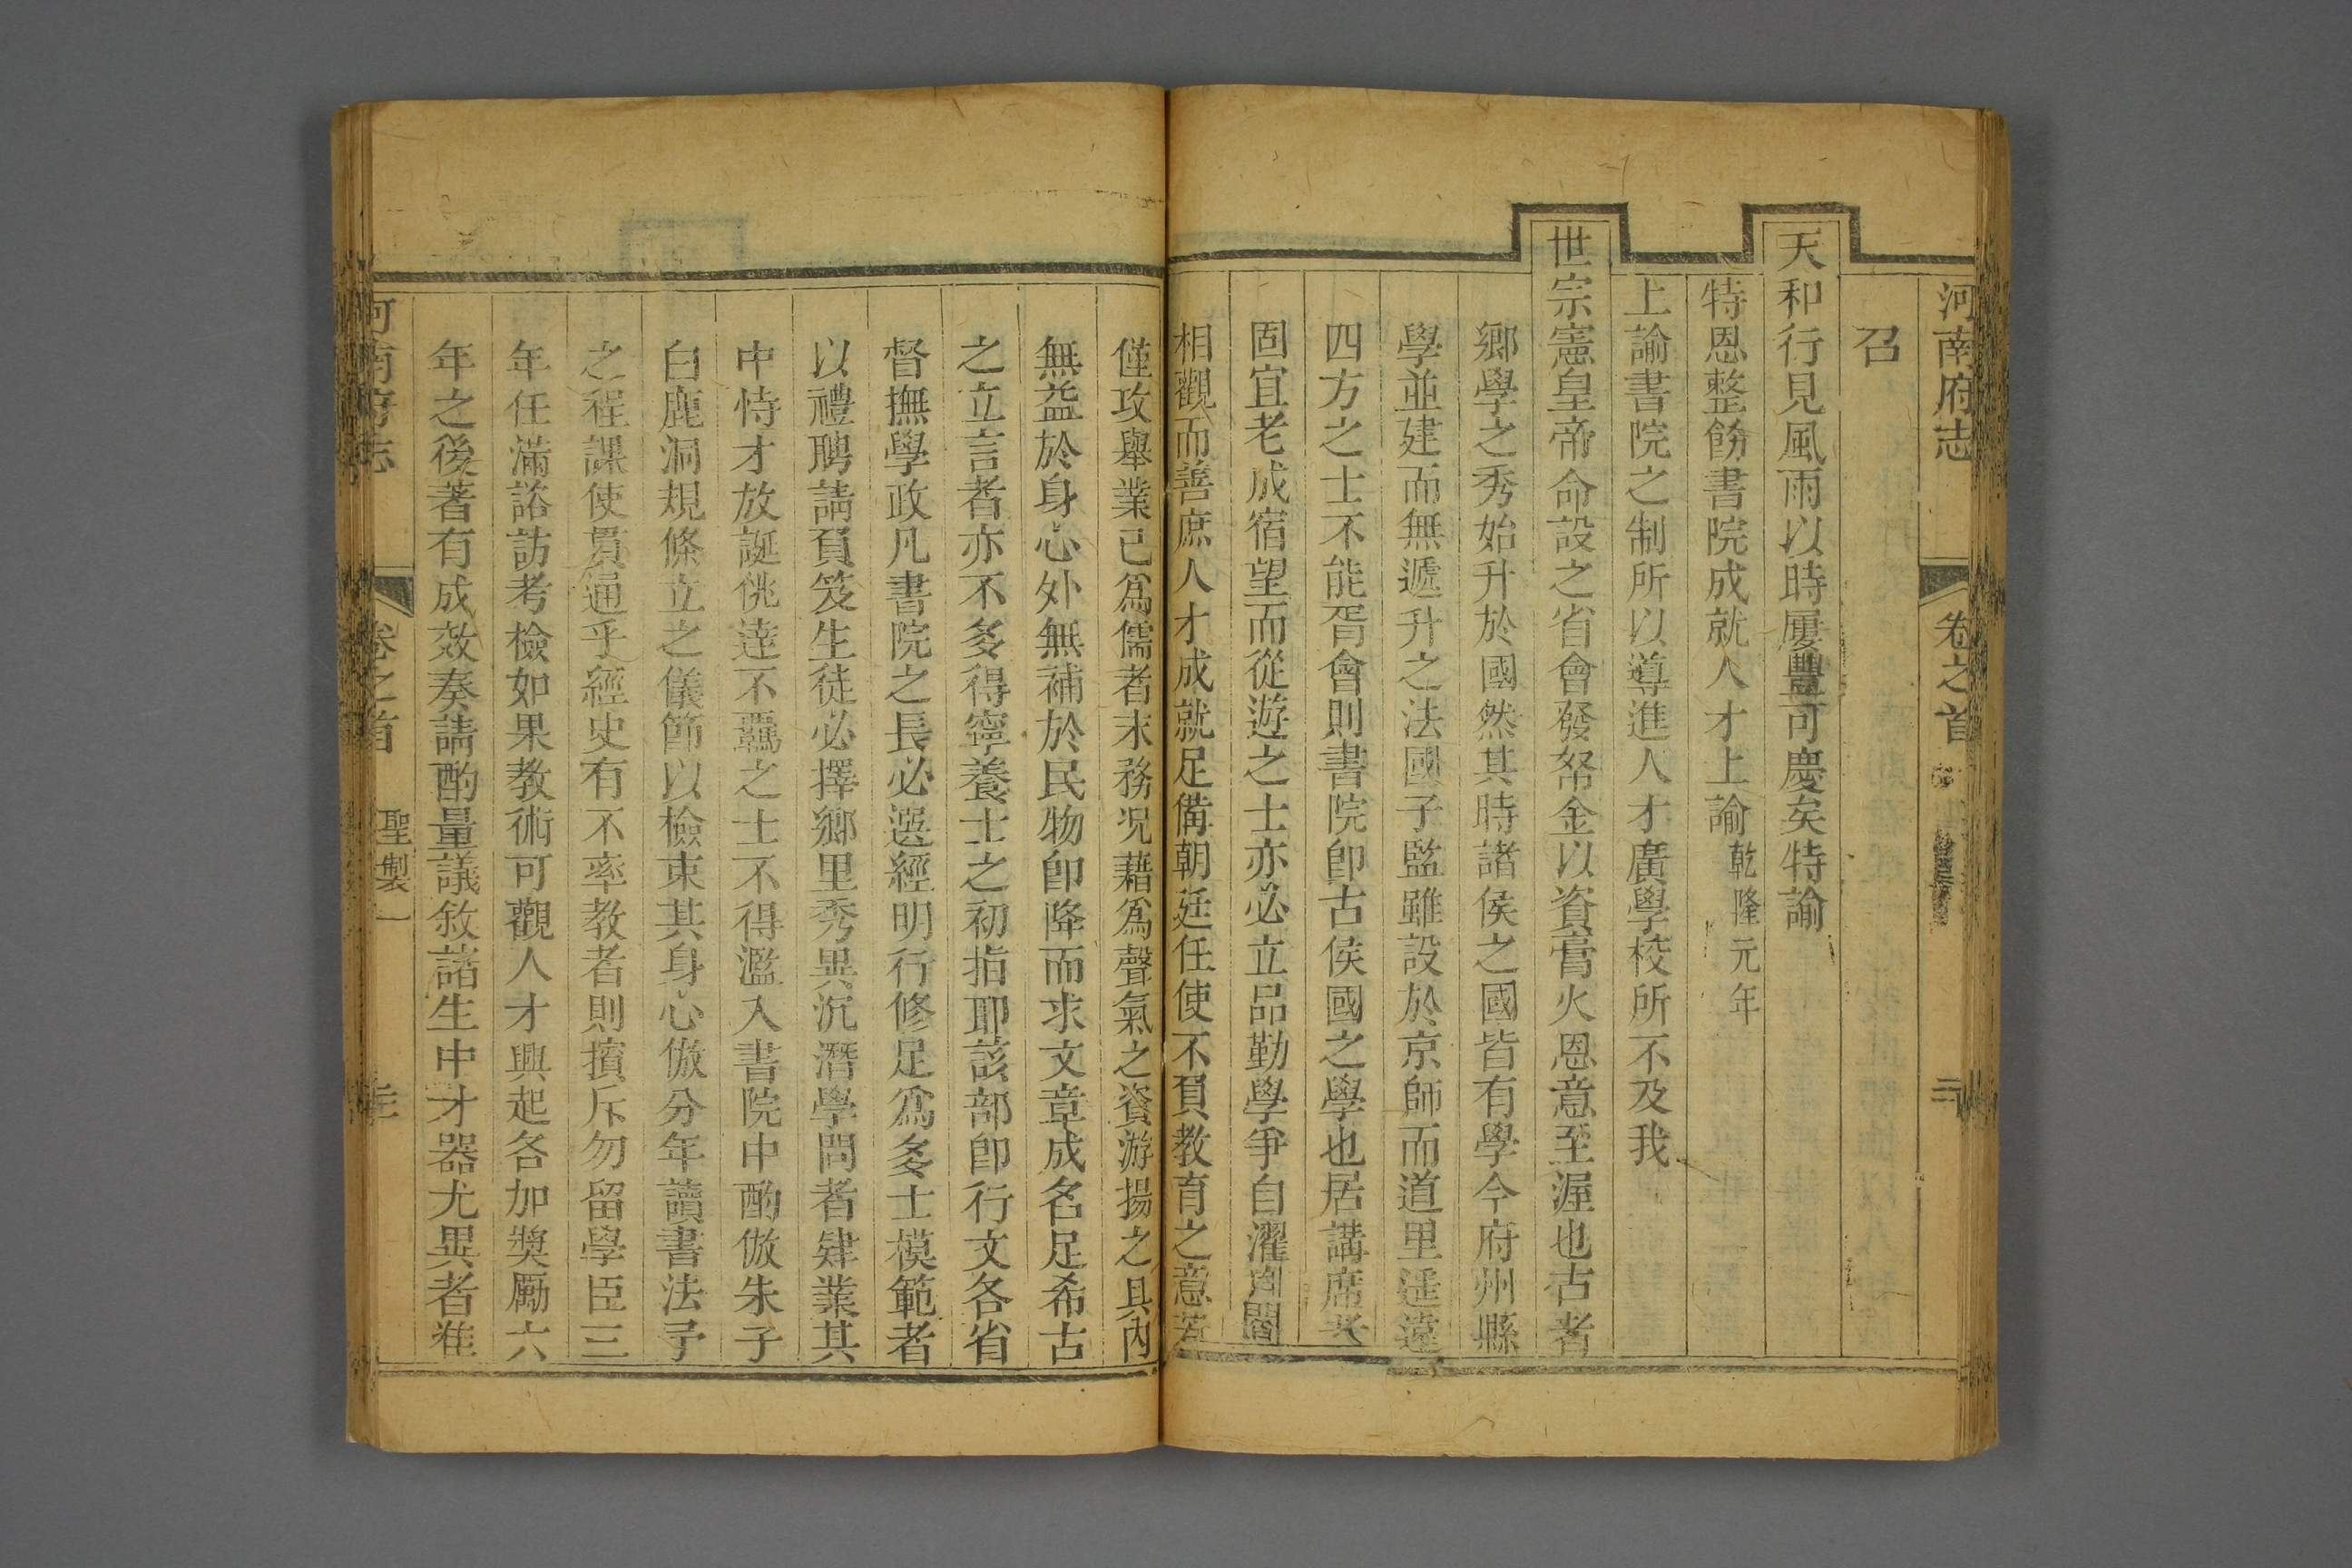 河南府志 卷之首 二
召
天和行見風雨以時屢豐可慶矣特諭
特恩整飭書院成就人才上諭 乾隆元年
上諭書院之制所以導進人才廣學校所不及我
世宗憲皇帝命設之省會發帑金以資膏火恩意至渥也古者
鄉學之秀始升於國然其時諸侯之國皆有學今府州縣
學並建而無遞升之法國子監雖設於京師而道里遼遠
四方之士不能胥會則書院卽古侯國之學也居講席者
固宜老成宿望而從遊之士亦必立品勤學爭自濯磨
相觀而善庶人才成就足備朝廷任使不負教育之意若
僅攻舉業已爲儒者末務况藉爲聲氣之資游揚之具內
無益於身心外無補於民物卽降而求文章成名足希古
之立言者亦不多得寧養士之初指耶該部卽行文各省
督撫學政凡書院之長必選經明行修足爲多士模範者
以禮聘請負笈生徒必擇鄉里秀異沉潛學問者肄業其
中恃才放誕佻達不羈之士不得濫入書院中酌倣朱子
白鹿洞規條立之儀節以檢束其身心倣分年讀書法予
之程課使貫通乎經史有不率教者則擯斥勿留學臣三
年任滿諮訪考檢如果教術可觀人才興起各加獎勵六
年之後著有成效奏請酌量議敘諸生中才器尤異者准
河南府志 卷之首 聖製一